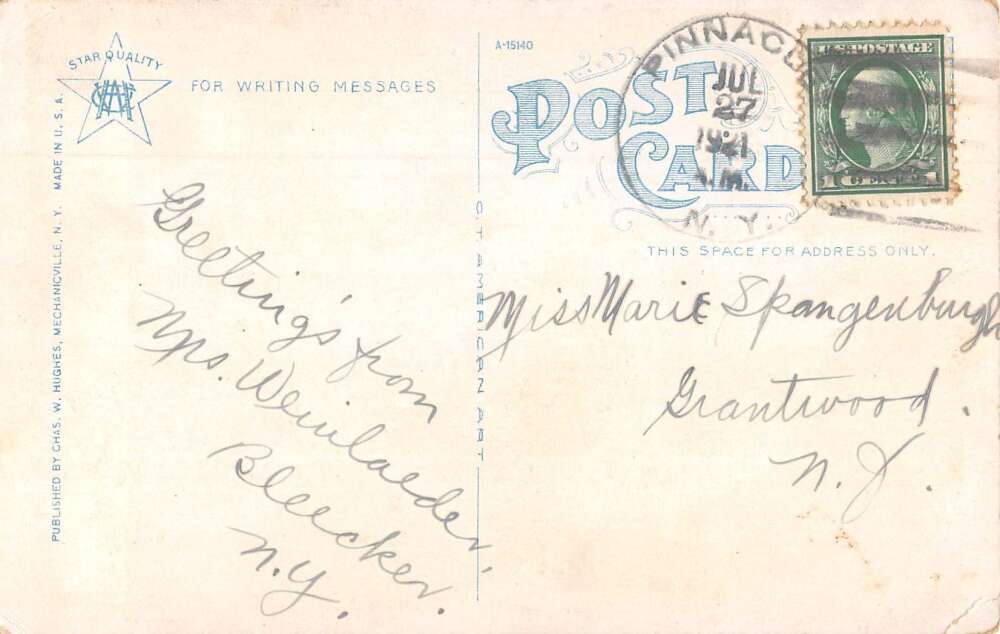 STAR QUALITY
FOR WRITING MESSAGES
PUBLISHED BY CHAS. W. HUGHES, MECHANICVILLE, N. Y. MADE IN U. S. A.
Greetings from
Mrs.
Bleecker.
N.Y.
C. T. AMERICAN ART
A-15140
POST CARD
JUL
27
1921
N. Y.
U.S. POSTAGE
1 CENT 1
THIS SPACE FOR ADDRESS ONLY.
Miss Marie Spangenburgh
Grantwood.
N. J.